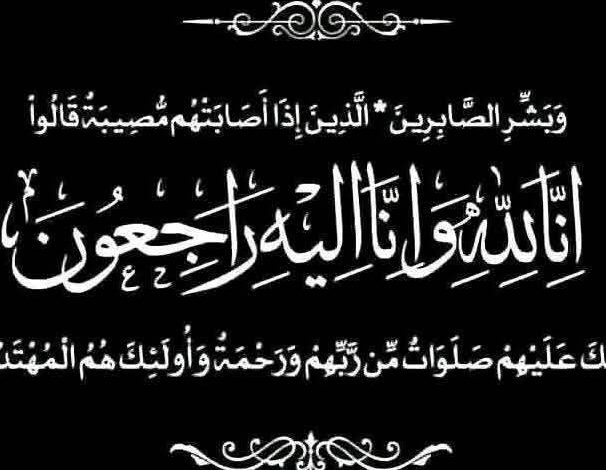 وَبَشِّرِ الصَّابِرِينَ * الَّذِينَ إِذَا أَصَابَتْهُم مُّصِيبَةٌ قَالُواْ
اِنَّا لِلّٰهِ وَاِنَّا اِلَيْهِ رَاجِعُونَ
عَلَيْهِمْ صَلَوَاتٌ مِّن رَّبِّهِمْ وَرَحْمَةٌ وَأُولَئِكَ هُمُ